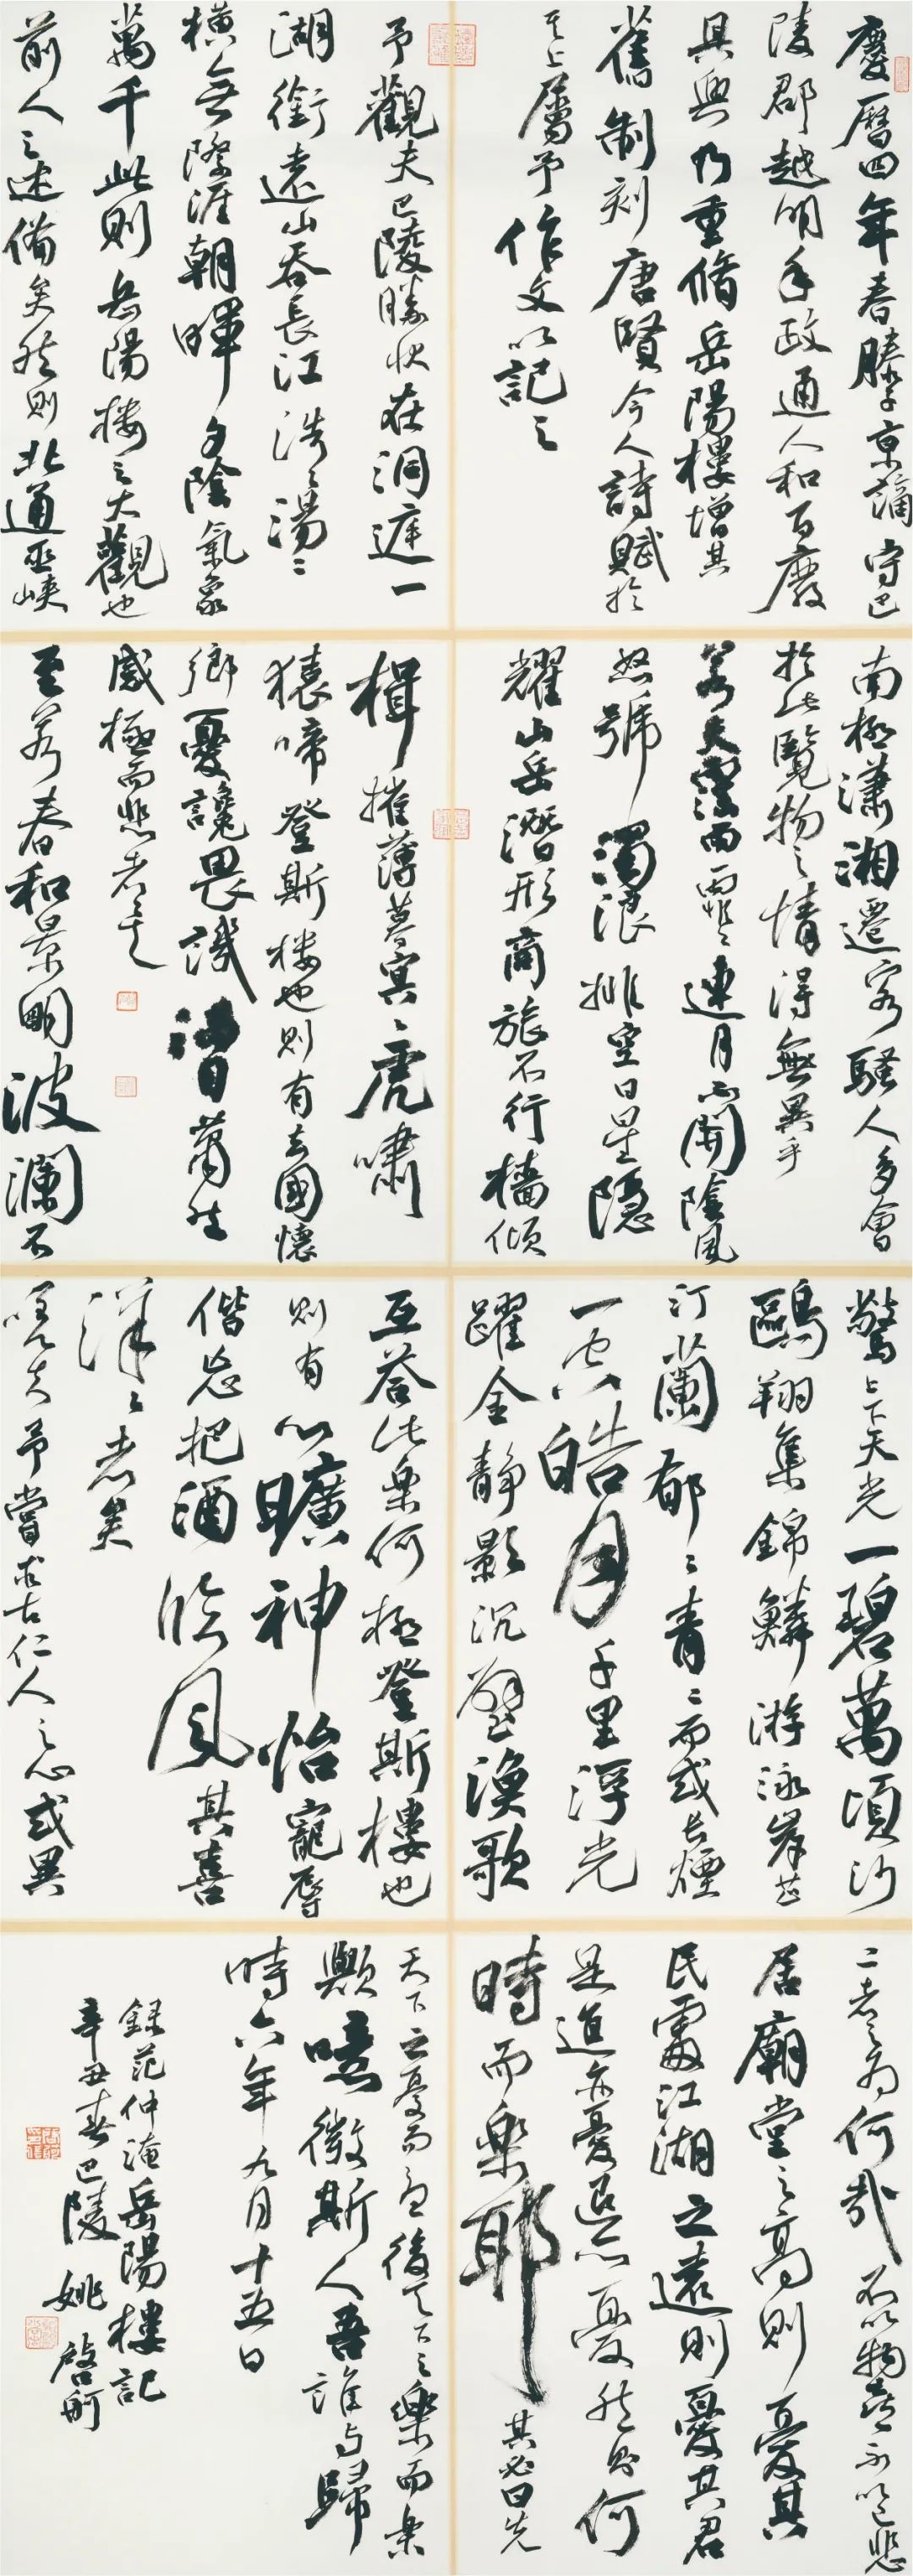 慶曆四年春滕子京謫守巴
陵郡越明年政通人和百廢
具興乃重脩岳陽樓增其
舊制刻唐賢今人詩賦於
其上屬予作文以記之
予觀夫巴陵勝狀在洞庭一
湖銜遠山吞長江浩〻湯〻
橫無際涯朝暉夕陰氣象
萬千此則岳陽楼之大觀也
前人之述備矣然則北通巫峽
南極瀟湘遷客騷人多會
於此覽物之情得無異乎
若夫霪雨霏〻連月不開陰風
怒號濁浪排空日星隱
耀山岳潛形商旅不行檣傾
楫摧薄暮冥〻虎嘯
猿啼登斯楼也則有去國懷
鄉憂讒畏譏滿目蕭然
感極而悲者矣
至若春和景明波瀾不
驚上下天光一碧萬頃沙
鷗翔集錦鱗游泳岸芷
汀蘭郁〻青〻而或長煙
一空皓月千里浮光
躍金靜影沉璧漁歌
互答此樂何極登斯樓也
則有心曠神怡寵辱
偕忘把酒臨風其喜
洋〻者矣
嗟夫予嘗求古仁人之心或異
二者之為何哉不以物喜不以己悲
居廟堂之高則憂其
民處江湖之遠則憂其君
是進亦憂退亦憂然則何
時而樂耶其必曰先
天下之憂而憂後天下之樂而樂
歟噫微斯人吾誰与歸
時六年九月十五日
錄范仲淹岳陽樓記
辛丑春巴陵姚啓舸